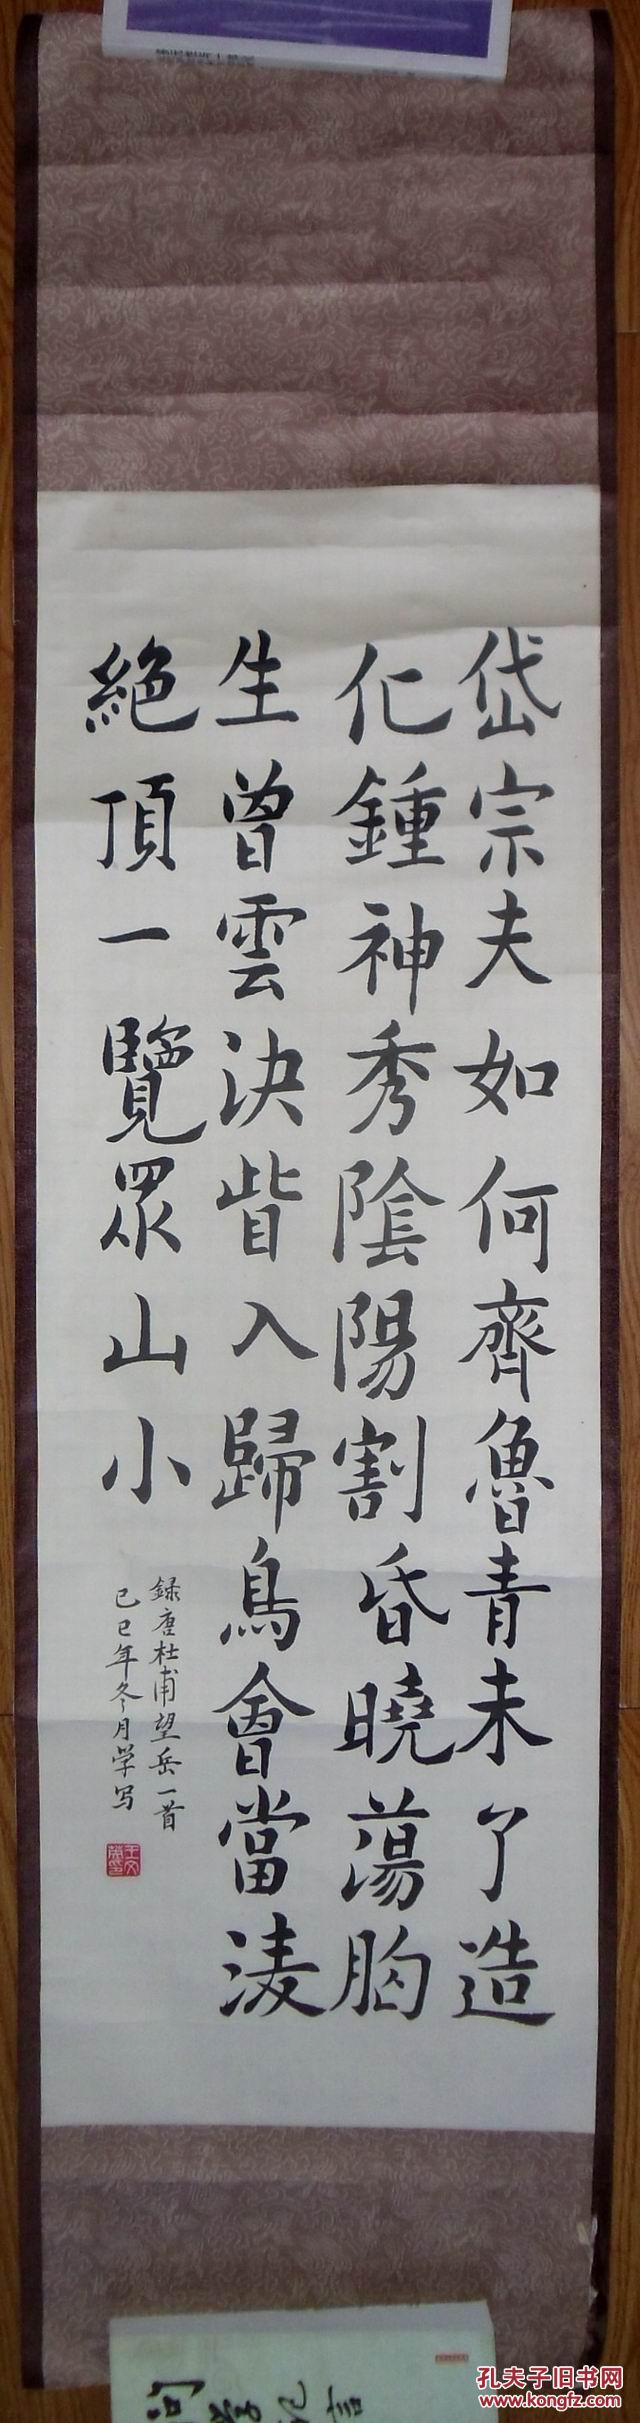 岱宗夫如何齊魯青未了造
化鍾神秀陰陽割昏曉蕩胸
生曾雲決眥入歸鳥會當淩
絕頂一覽眾山小
録唐杜甫望岳一首
己巳年冬月学写
孔夫子旧书网
www.kongfz.com